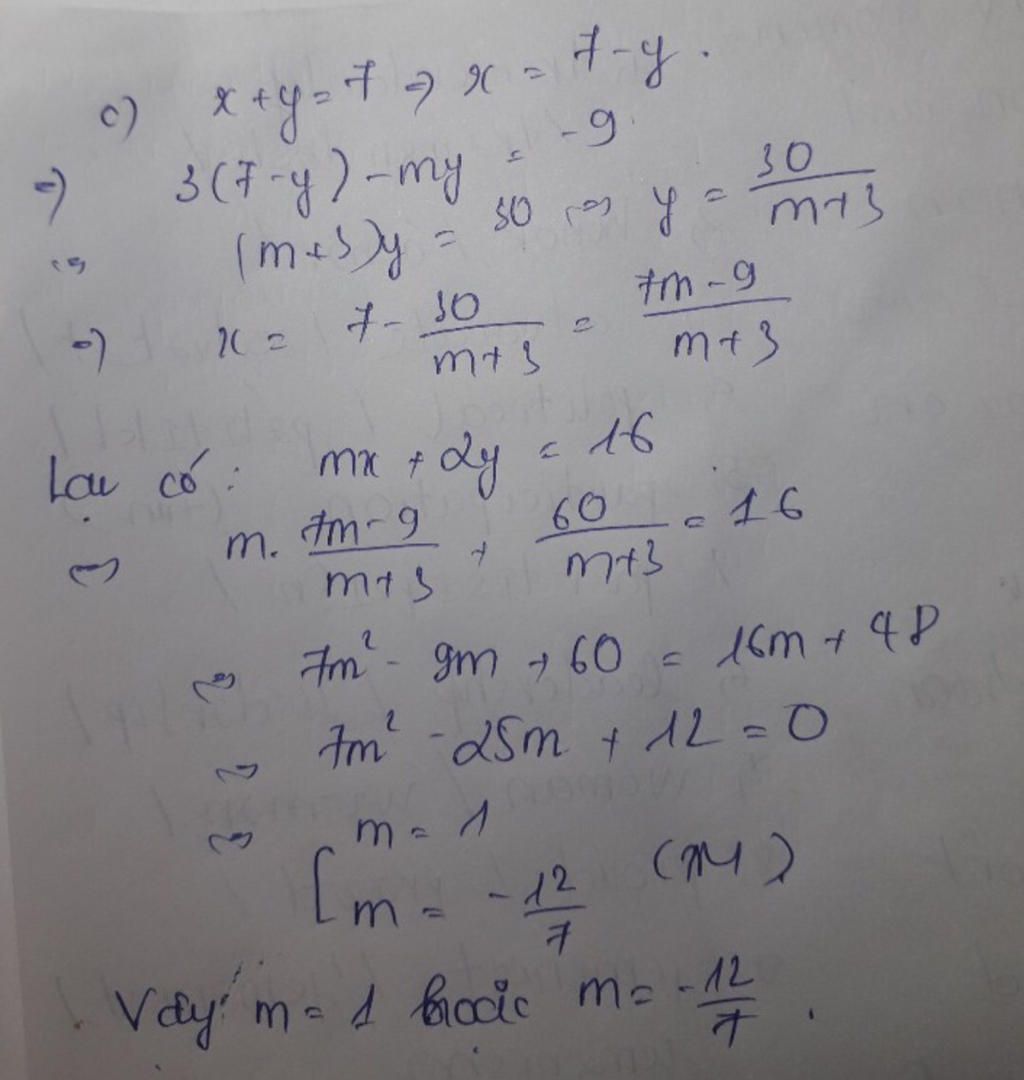 c) x + y = 7 => x = 7 - y.
=> 3(7 - y) - my = -9
<=> (m + 3)y = 30 <=> y = 30/(m+3)
=> x = 7 - 30/(m+3) = (7m - 9)/(m+3)
Lại có: mx + 2y = 16
<=> m. (7m - 9)/(m+3) + 60/(m+3) = 16
<=> 7m² - 9m + 60 = 16m + 48
<=> 7m² - 25m + 12 = 0
<=> [ m = 1
m = -12/7 (TM)
Vậy m = 1 hoặc m = -12/7.